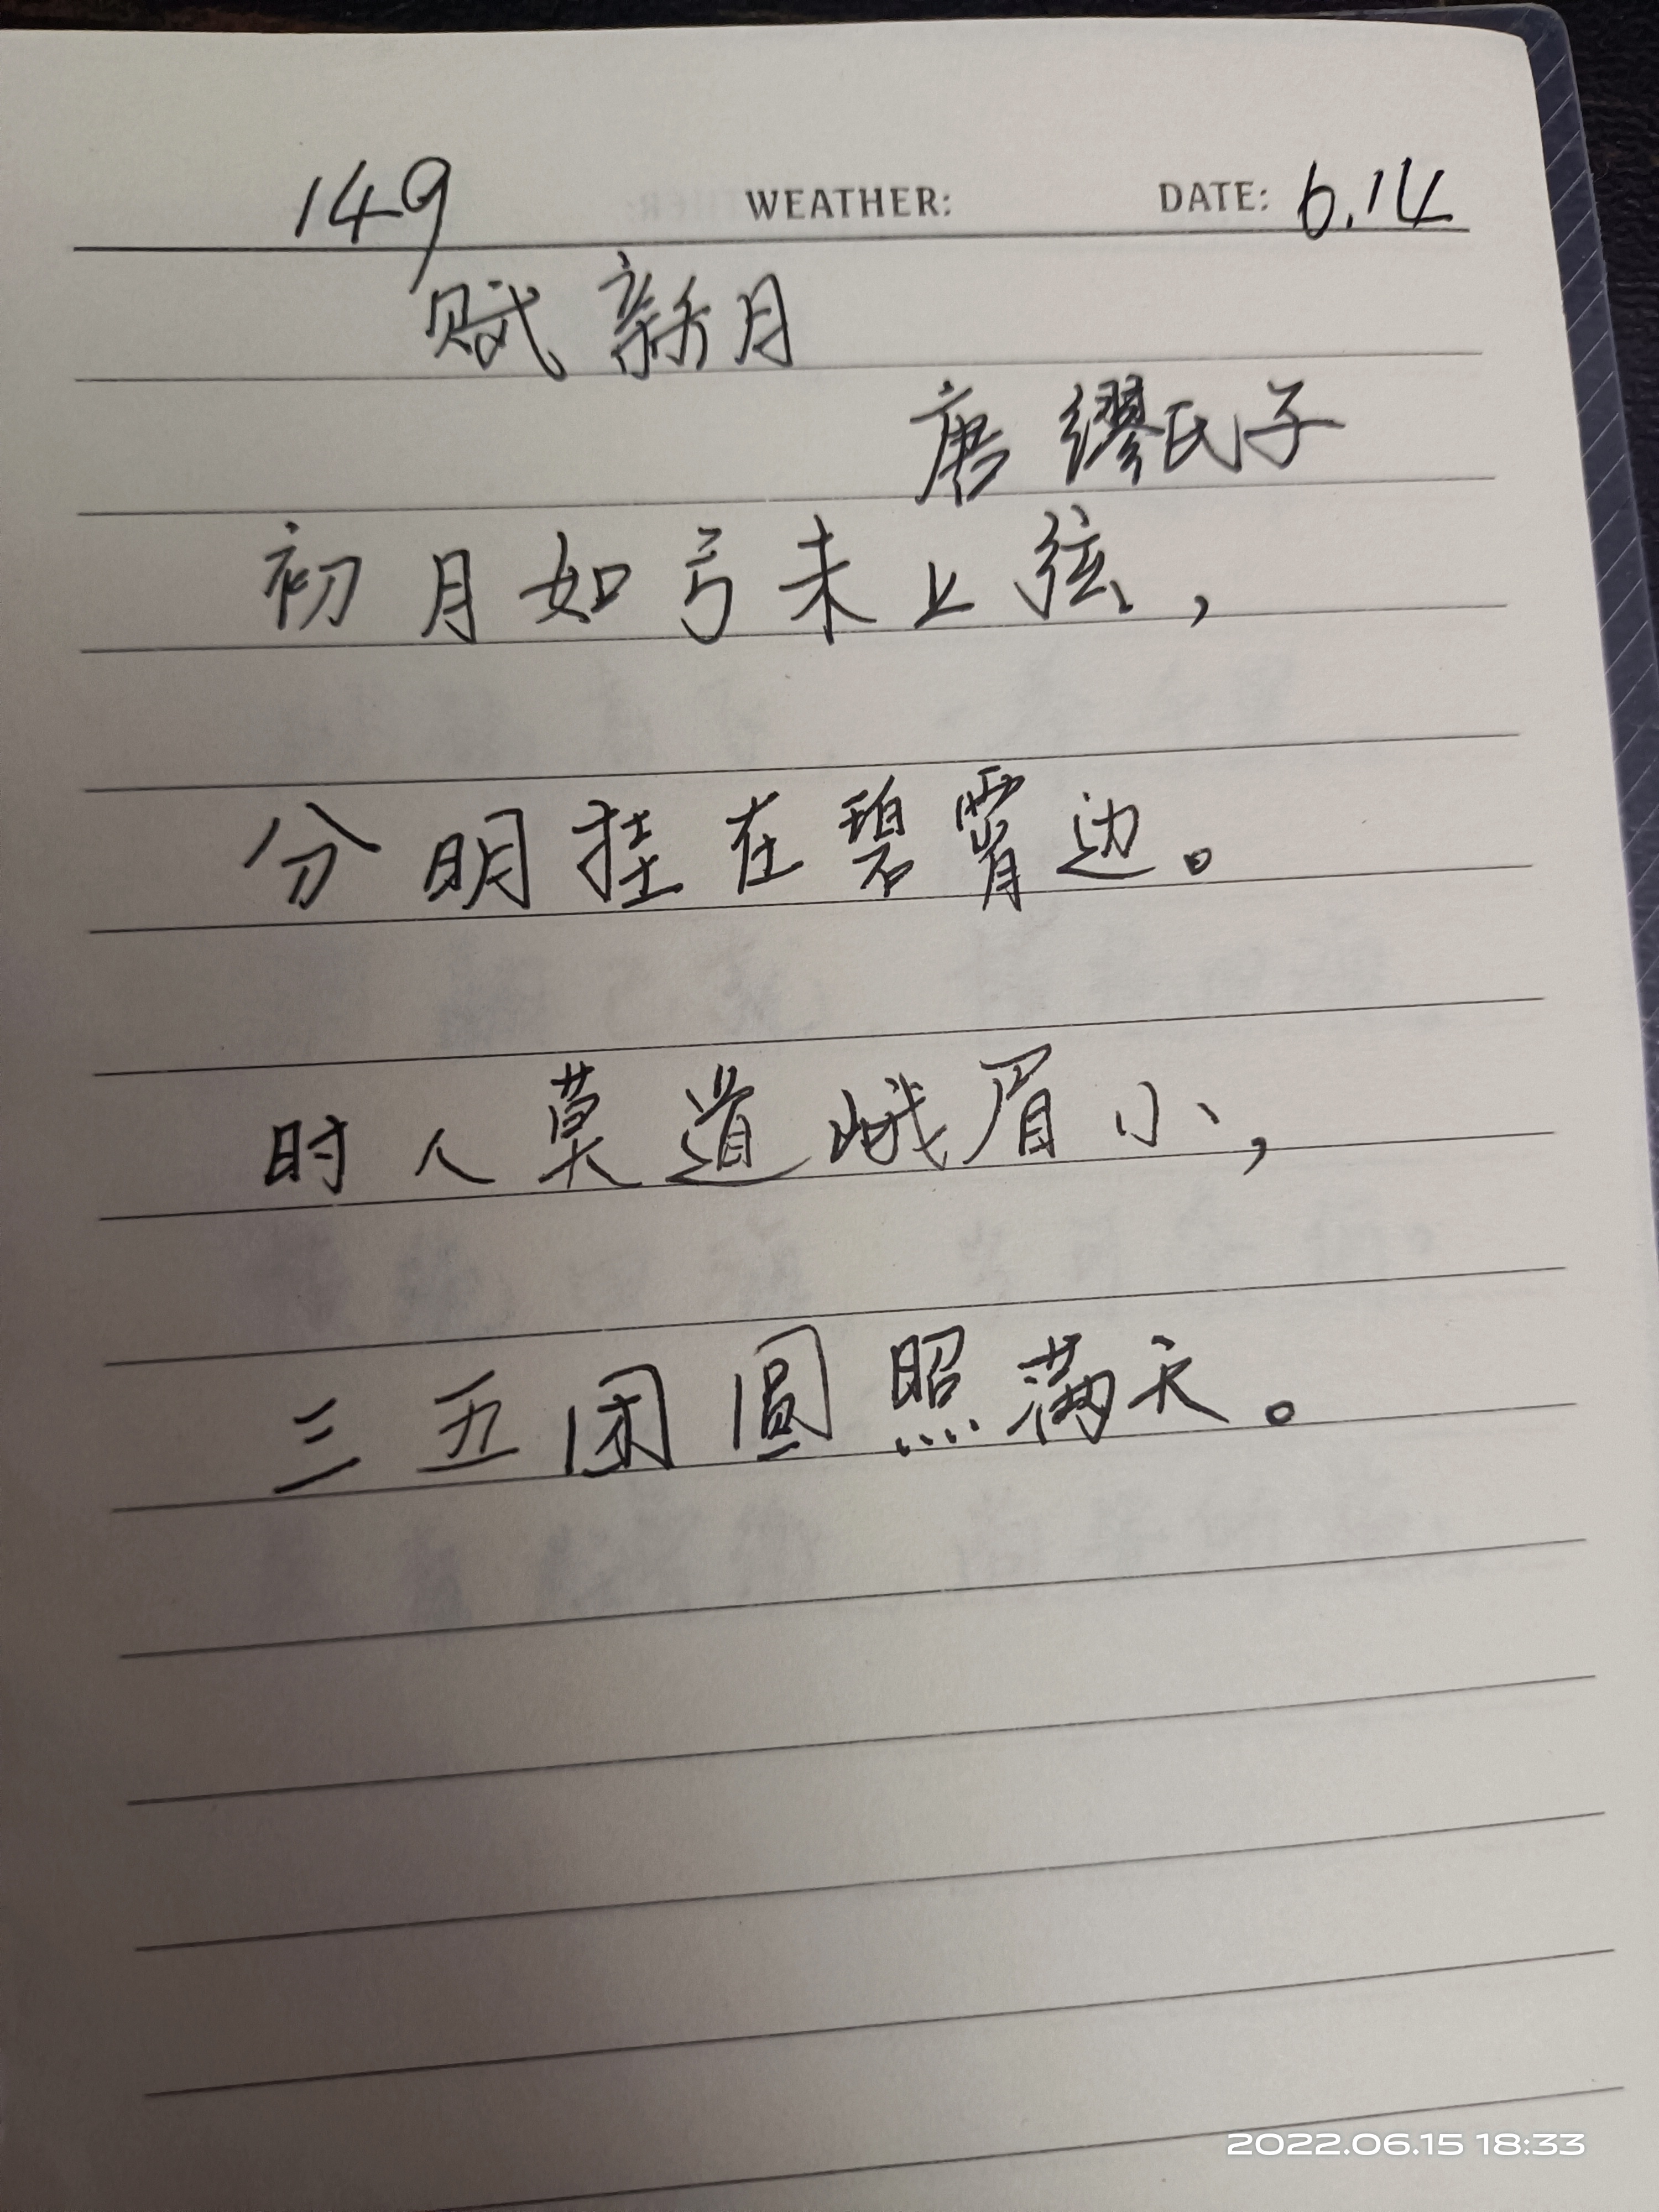 149 WEATHER: DATE: 6.14
赋新月
唐 缪氏子
初月如弓未上弦，
分明挂在碧霄边。
时人莫道峨眉小，
三五团圆照满天。
2022.06.15 18:33